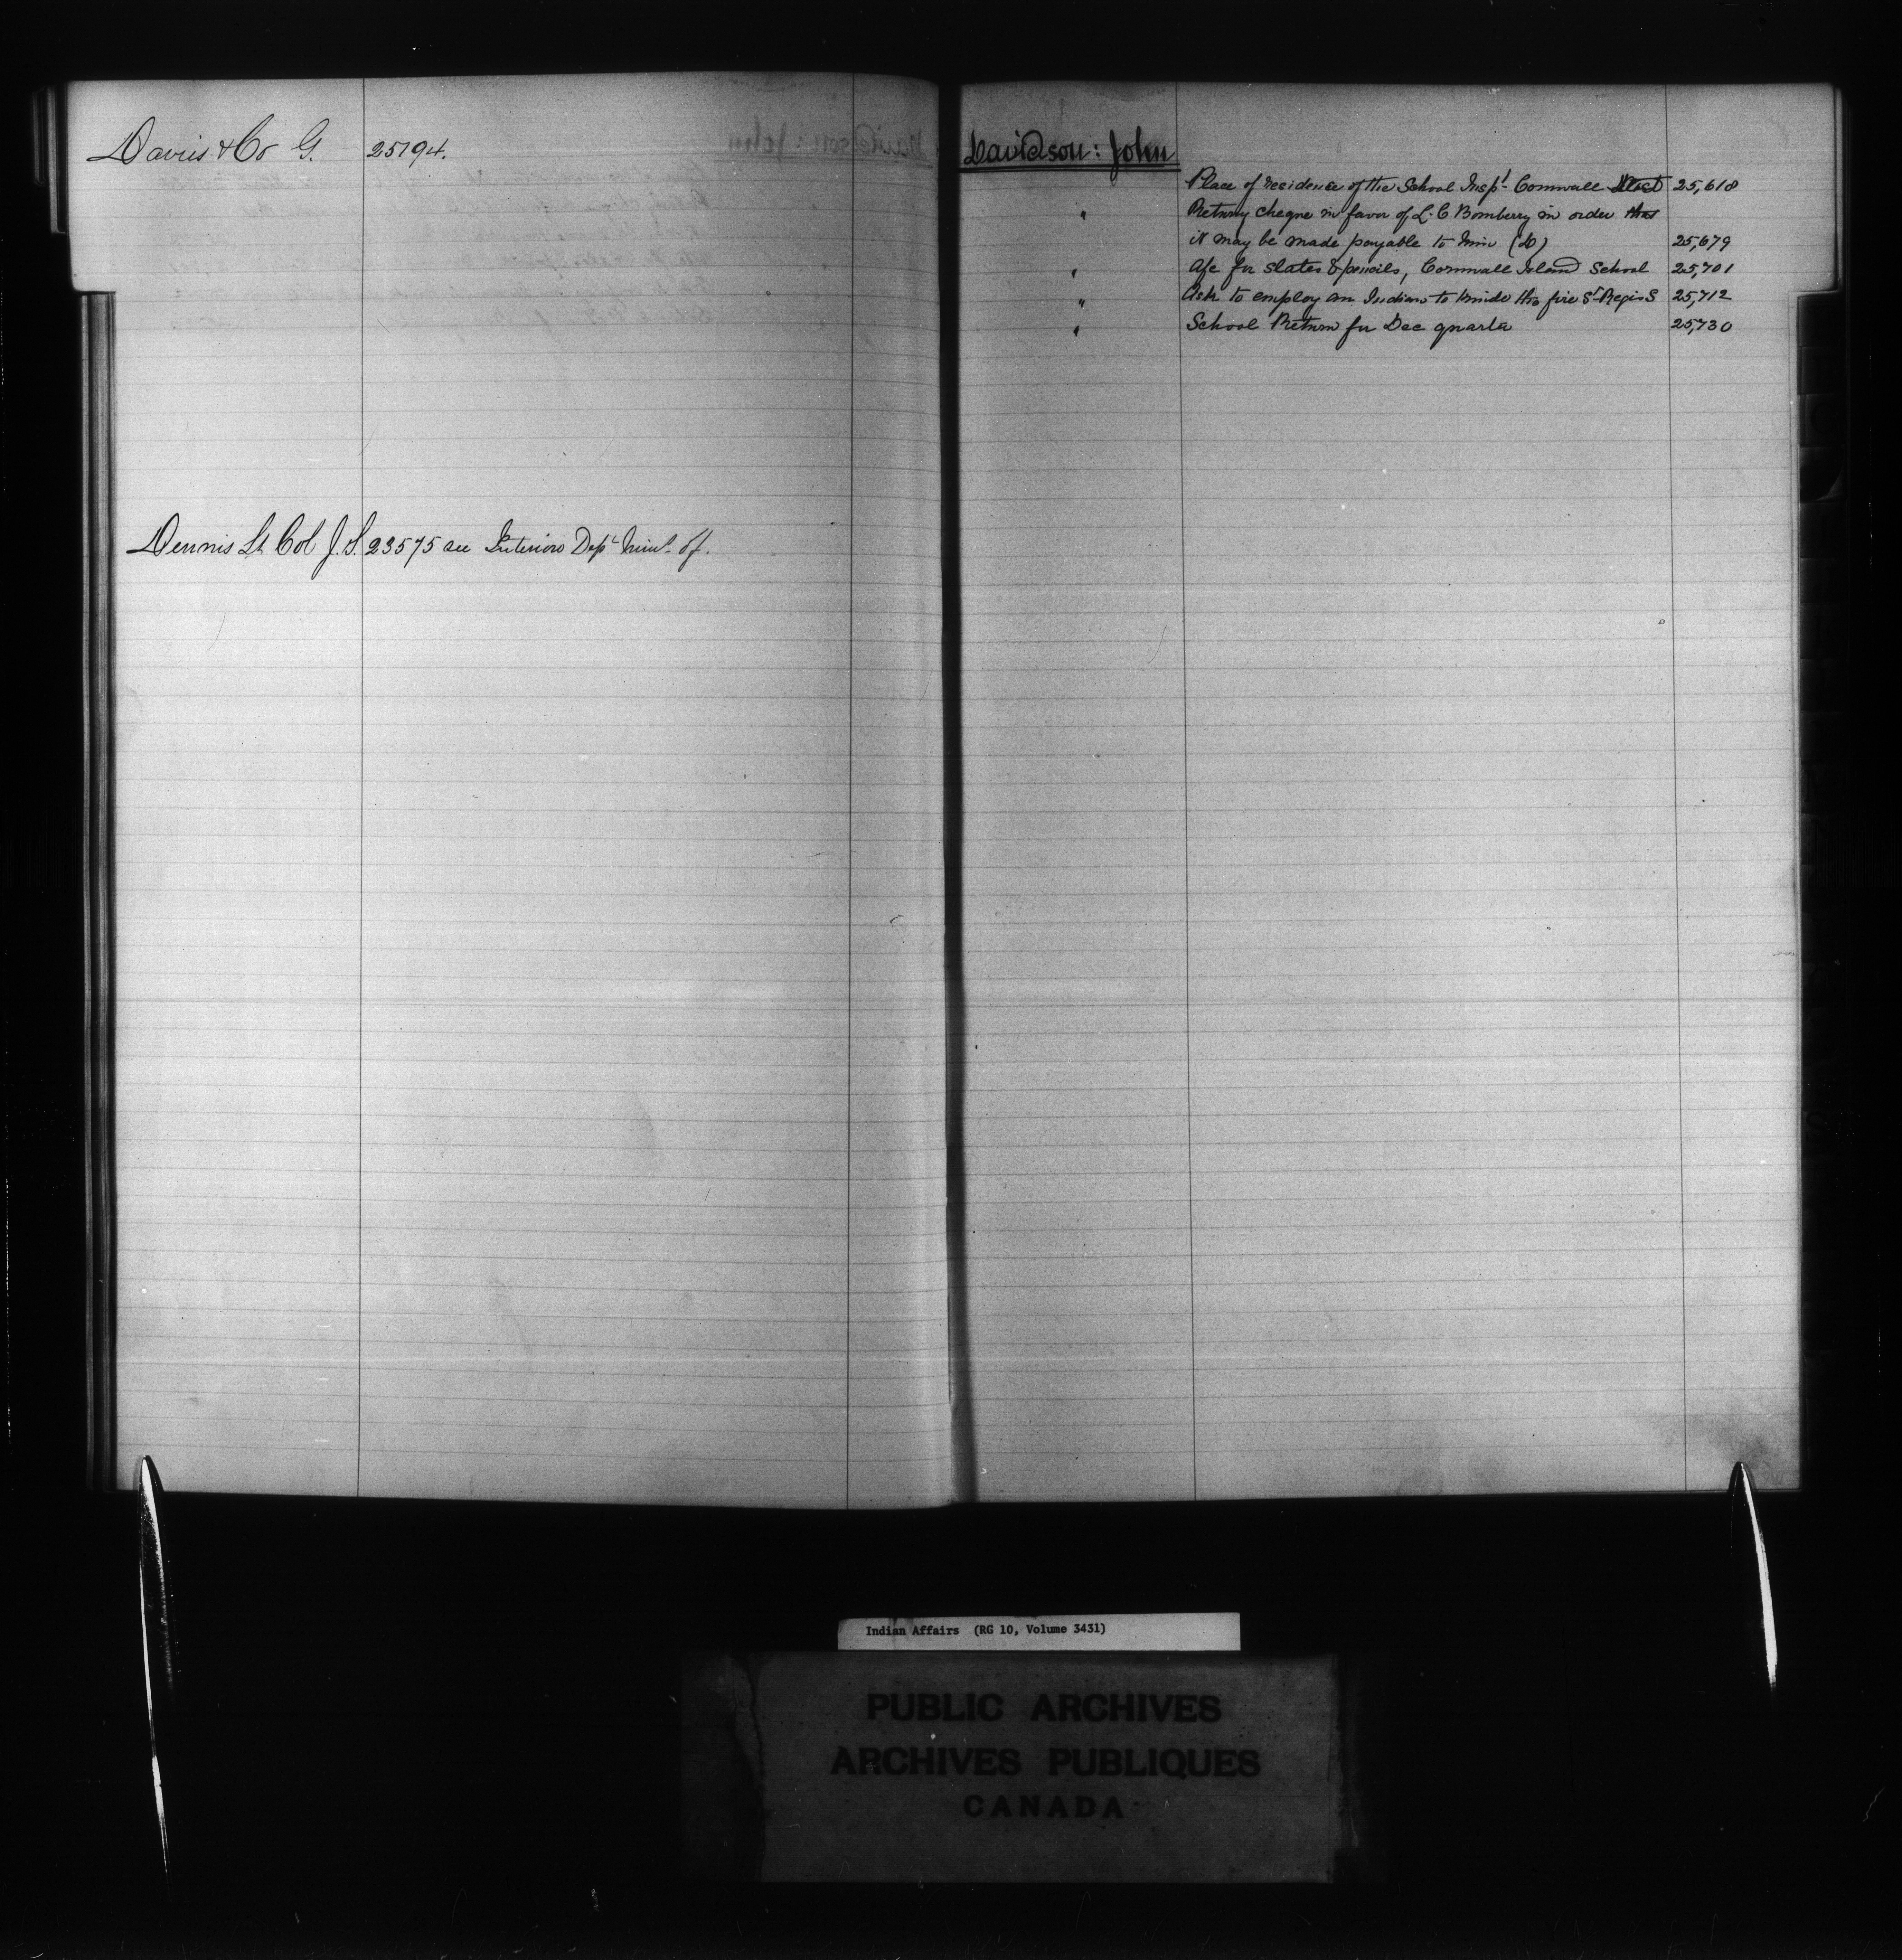 Davis & Co G. 25194.
Dennis Lt Col J.S. 23575 see Interior Dept Minr of.
Davidson: John
Place of residence of the School Inspr Cornwall 25,618
" Returng cheque in favor of L. C Bomberry in order that
it may be made payable to him (D) 25,679
" a/c for slates & pencils, Cornwall Island School 25,701
" Ask to employ an Indian to kindle the fire St Regis S 25,712
" School Return for Dec quarter 25,730
Indian Affairs (RG 10, Volume 3431)
PUBLIC ARCHIVES
ARCHIVES PUBLIQUES
CANADA